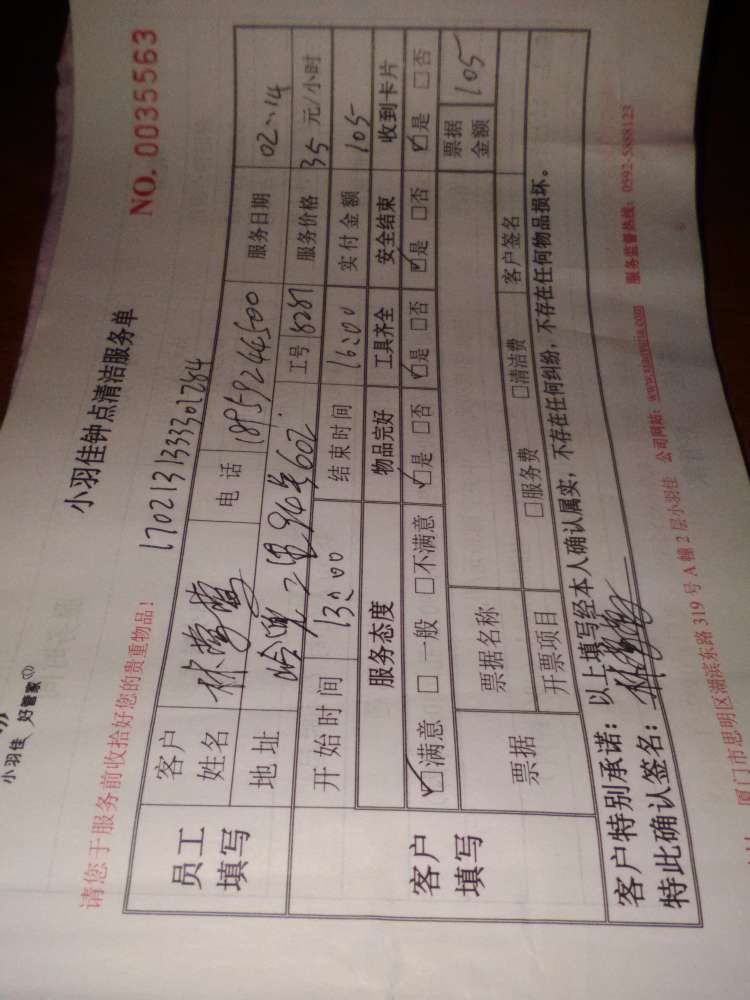 小羽佳 好管家
小羽佳钟点清洁服务单
NO. 0035563
请您于服务前收拾好您的贵重物品!
170213133330284
员工填写
客户姓名
电话 18559244500
服务日期 02、14
地址 2里94号602
工号 8281
服务价格 35 元/小时
开始时间 13:00
结束时间 16:00
实付金额 105
客户填写
服务态度 物品完好 工具齐全 安全结束 收到卡片
☑满意 □一般 □不满意 ☑是 □否 ☑是 □否 ☑是 □否 ☑是 □否
票据
票据名称
票据金额 105
开票项目 □服务费 □清洁费 客户签名
客户特别承诺:以上填写经本人确认属实,不存在任何纠纷,不存在任何物品损坏。
特此确认签名:
厦门市思明区湖滨东路 319 号 A 幢 2 层小羽佳 公司网站:www.xiaoyujia.com 服务监督热线:0592-5888123